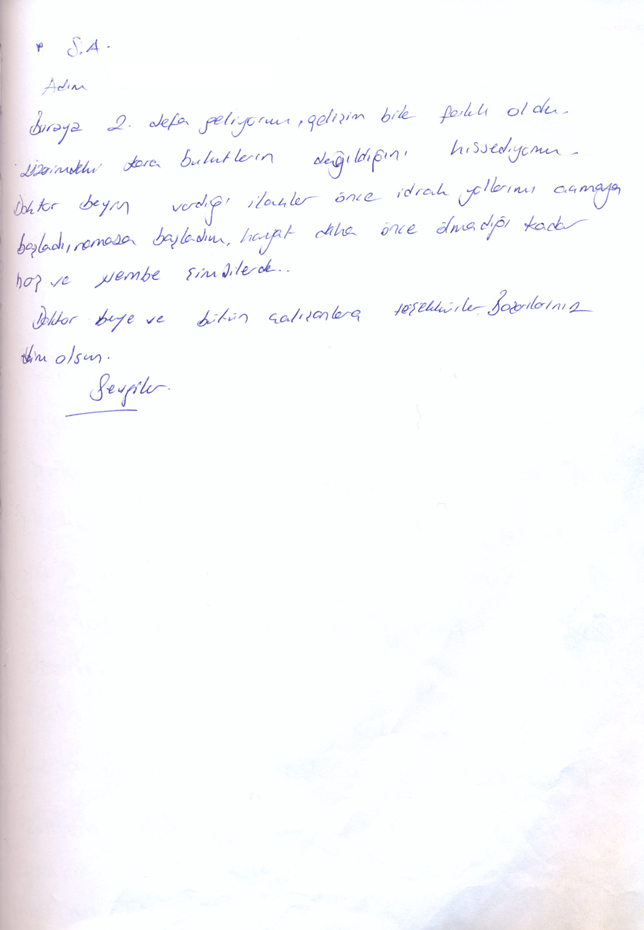 S.A.
Adım
Buraya 2. defa geliyorum, gelişim bile farklı oldu.
üzerimdeki kara bulutların dağıldığını hissediyorum.
Doktor beyin verdiği ilaçlar önce idrak yollarımı açmaya
başladı, namaza başladım, hayat daha önce olmadığı kadar
hoş ve pembe şimdilerde..
Doktor beye ve bütün çalışanlara teşekkürler. Başarılarınız
daim olsun.
Sevgiler.